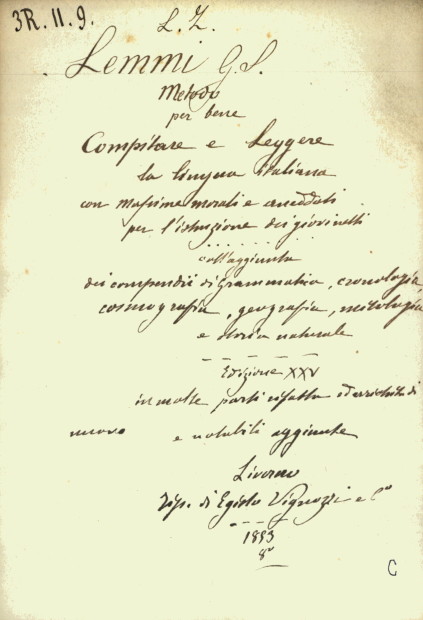 3R. 11. 9.
L. Z.
Lemmi G. S.
Metodo
per bene
Compitare e Leggere
la lingua italiana
con massime morali e aneddoti
per l'istruzione dei giovinetti
coll'aggiunta
dei compendii di Grammatica, cronologia,
cosmografia, geografia, mitologia
e storia naturale
Edizione XXV
in molte parti rifatta ed arricchita di
nuove e notabili aggiunte
Livorno
Tip. di Egisto Vignozzi e C°
1883
8°
C